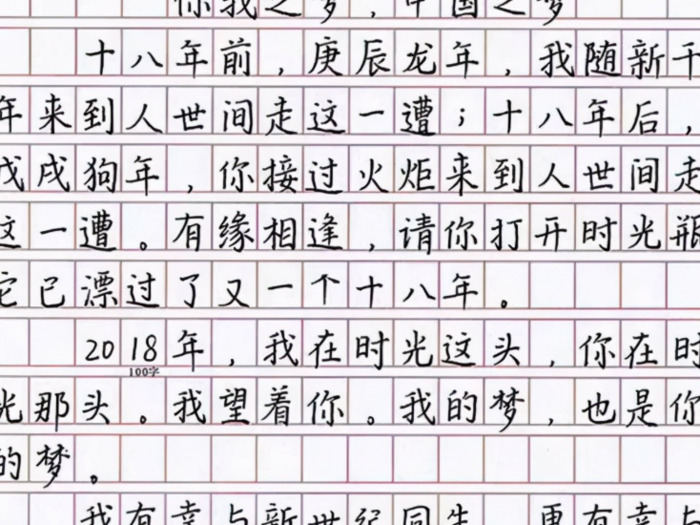 你我之梦，中国之梦
十八年前，庚辰龙年，我随新千
年来到人世间走这一遭；十八年后，
戊戌狗年，你接过火炬来到人世间走
这一遭。有缘相逢，请你打开时光瓶
它已漂过了又一个十八年。
2018年，我在时光这头，你在时
100字
光那头。我望着你。我的梦，也是你
的梦。
我有幸与新世纪同生，更有幸与